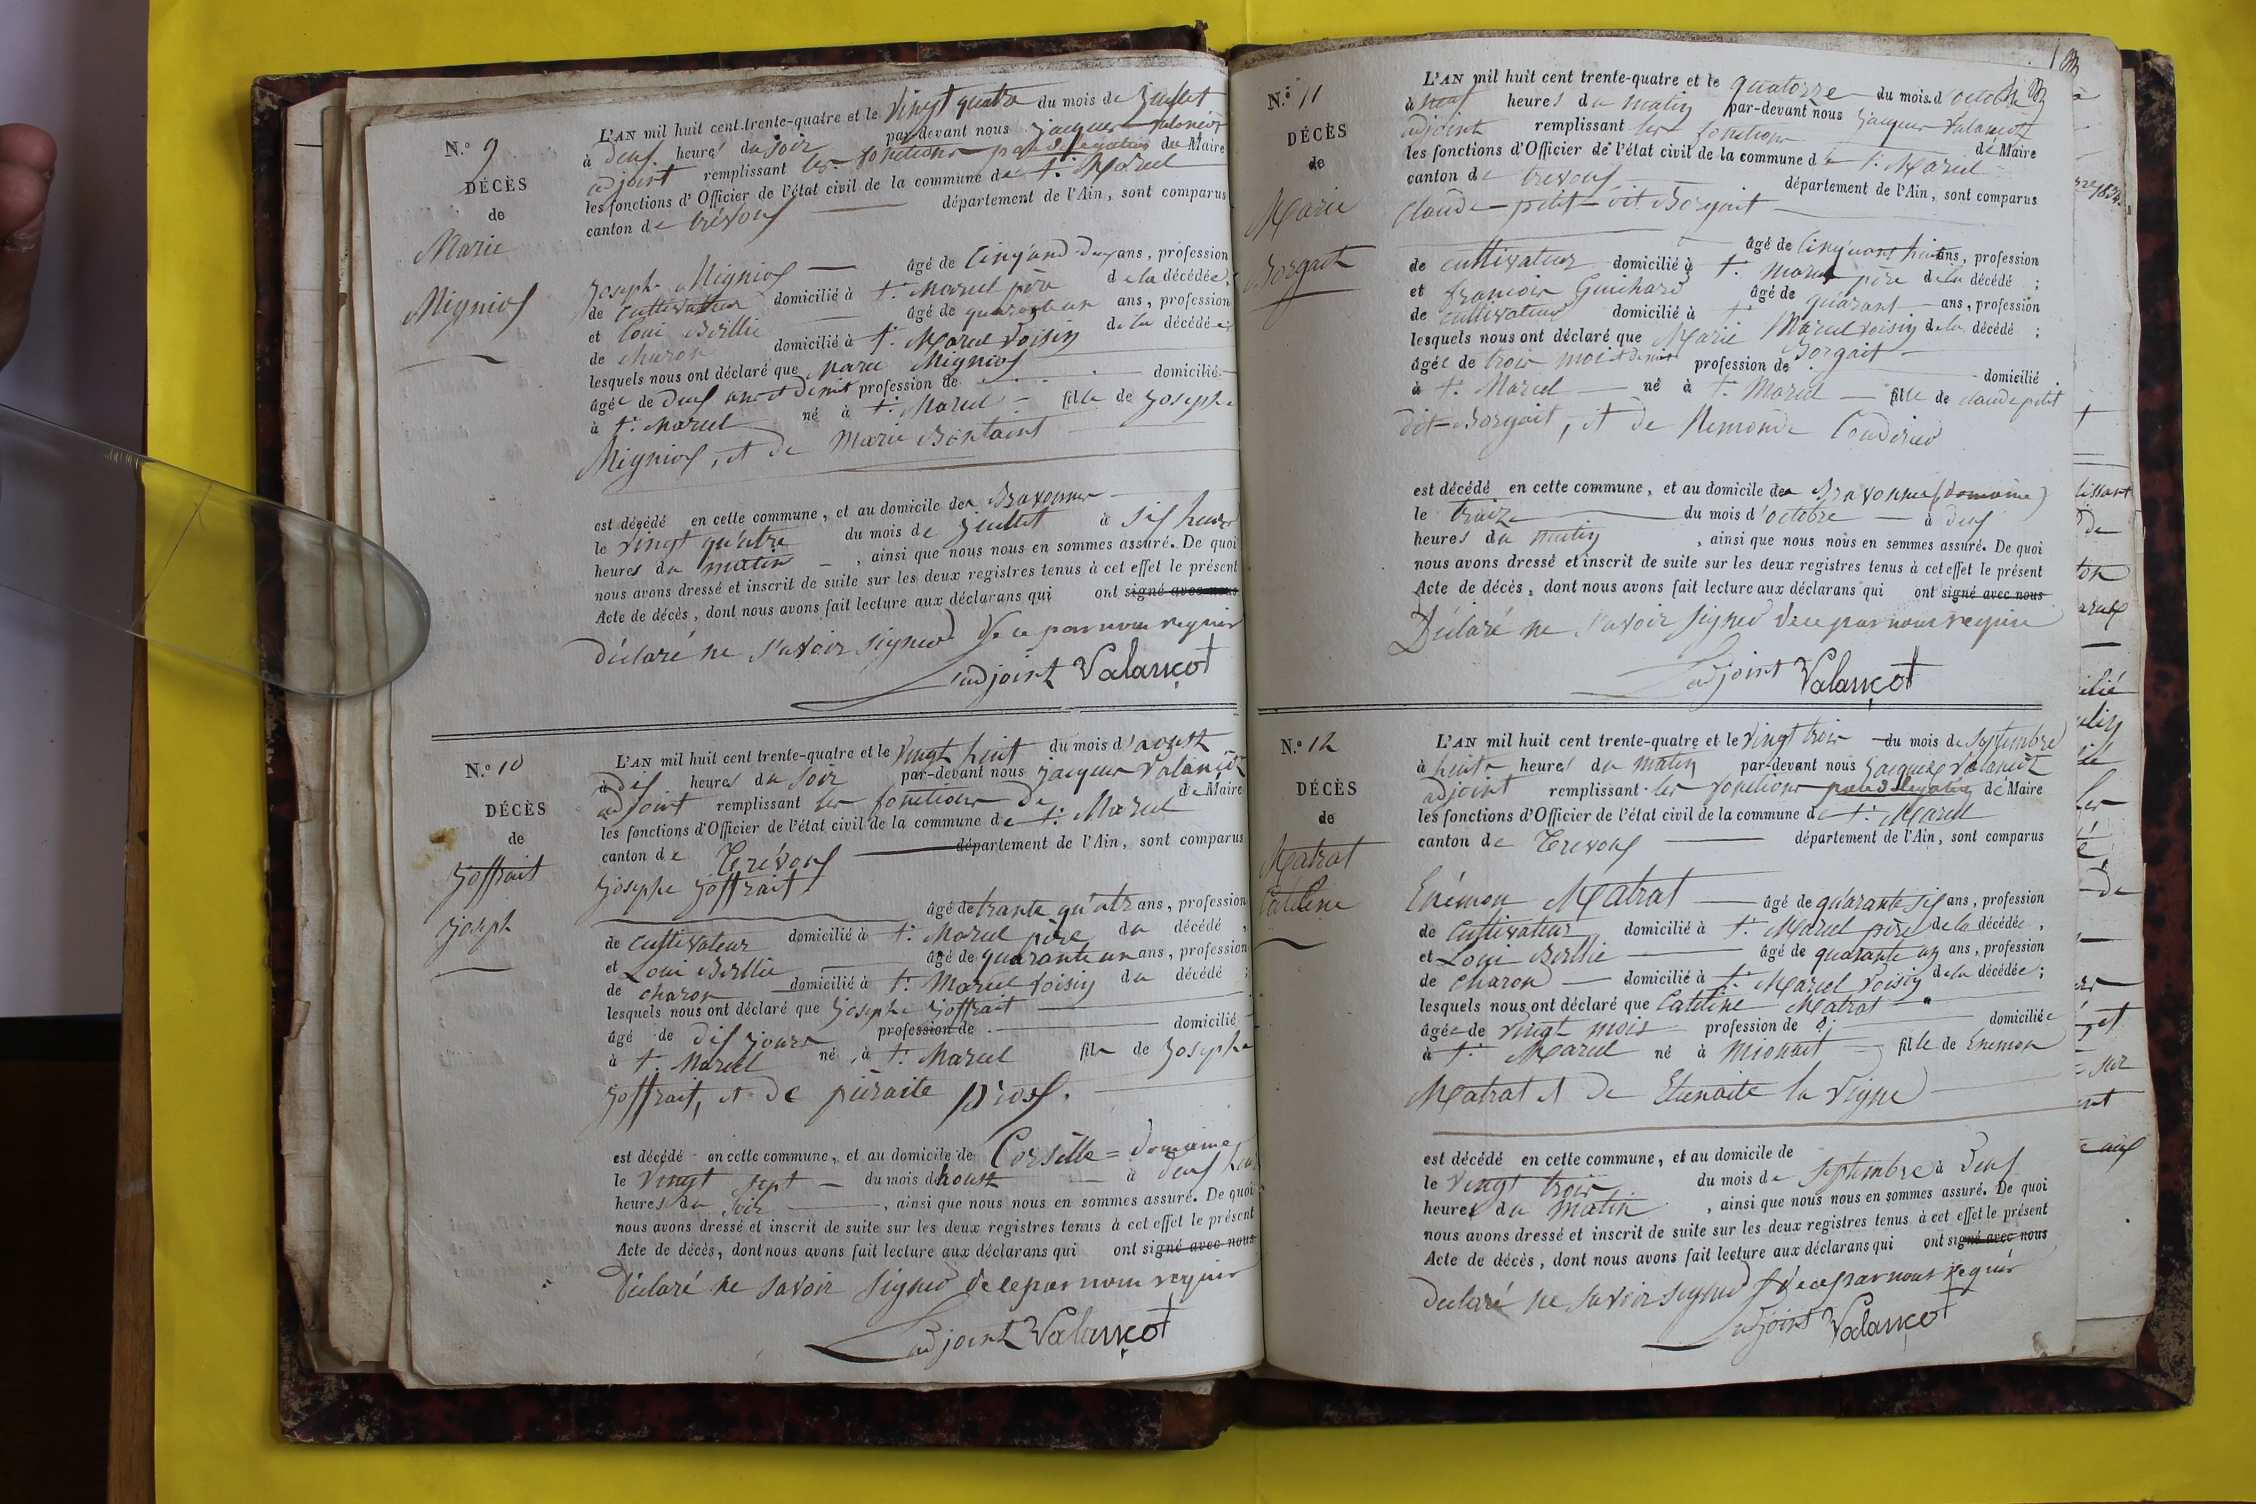 N.º 9
DÉCÈS
de
Marie
Migniot
L'AN mil huit cent trente-quatre et le vingt quatre du mois de Juillet
à deux heures du soir par-devant nous Jacques Valançot
adjoint remplissant les fonctions par délégation du Maire
les fonctions d'Officier de l'état civil de la commune de St. Marcel
canton de trévoux département de l'Ain, sont comparus
Josephe Migniot âgé de Cinquand deux ans, profession
de Cultivateur domicilié à St. Marcel père de la décédée,
et Loui Berllie âgé de quarante un ans, profession
de charon domicilié à St. Marcel voisin de la décédée;
lesquels nous ont déclaré que Marie Migniot
âgée de deux ans et demit profession de domicilié
à St. Marcel né à St. Marcel fille de Josephe
Migniot, et de Marie Bontaint
est décédé en cette commune, et au domicile de Bravonne
le vingt qu'atre du mois de Juillet à six heures
heures du matin, ainsi que nous nous en sommes assuré. De quoi
nous avons dressé et inscrit de suite sur les deux registres tenus à cet effet le présent
Acte de décès, dont nous avons fait lecture aux déclarans qui ont signé avec nous
Déclaré ne savoir signer de ce par nous requir
L'adjoint Valançot
N.º 10
DÉCÈS
de
Joffrait
Joseph
L'AN mil huit cent trente-quatre et le vingt huit du mois d'aoust
à dix heures du soir par-devant nous Jacques Valançot
adjoint remplissant les fonctions de de Maire
les fonctions d'Officier de l'état civil de la commune de St. Marcel
canton de Trévoux département de l'Ain, sont comparus
Josephe Joffrait
âgé de trante qu'atr ans, profession
de Cultivateur domicilié à St. Marcel père du décédé,
et Loui Berllie âgé de quarante un ans, profession
de charon domicilié à St. Marcel voisin du décédé;
lesquels nous ont déclaré que Josephe Joffrait
âgé de dix jours profession de domicilié
à St. Marcel né à St. Marcel fils de Josephe
Joffrait, et de pieraite
est décédé en cette commune, et au domicile de Corsille = domaine
le vingt sept du mois d'houst à deux heur
heures du soir, ainsi que nous nous en sommes assuré. De quoi
nous avons dressé et inscrit de suite sur les deux registres tenus à cet effet le présent
Acte de décès, dont nous avons fait lecture aux déclarans qui ont signé avec nous
Déclaré ne savoir signer de ce par nous requir
L'adjoint Valançot
N.º 11
DÉCÈS
de
Marie
Borgait
L'AN mil huit cent trente-quatre et le quatorze du mois d'octobre
à neuf heures du matin par-devant nous Jacques Valançot
adjoint remplissant les fonctions de Maire
les fonctions d'Officier de l'état civil de la commune de St. Marcel
canton de trevoux département de l'Ain, sont comparus
Claude petit dit Borgait
âgé de Cinquant huit ans, profession
de cultivateur domicilié à St. Marcel père de la décédé;
et francois Guichard âgé de quarant ans, profession
de cultivateur domicilié à St. Marcel voisin de la décédé;
lesquels nous ont déclaré que Marie Borgait
âgée de trois moi et demit profession de domicilié
à St. Marcel né à St. Marcel fille de claude petit
dit Borgait, et de Remonde
est décédé en cette commune, et au domicile de Bravonne (domaine)
le traize du mois d'octobre à deux
heures du matin, ainsi que nous nous en sommes assuré. De quoi
nous avons dressé et inscrit de suite sur les deux registres tenus à cet effet le présent
Acte de décès, dont nous avons fait lecture aux déclarans qui ont signé avec nous
Déclaré ne savoir signer de ce par nous requir
L'adjoint Valançot
N.º 12
DÉCÈS
de
Matrat
Catiline
L'AN mil huit cent trente-quatre et le vingt trois du mois de septembre
à huit heures du matin par-devant nous Jacques Valançot
adjoint remplissant les fonctions par délégation de Maire
les fonctions d'Officier de l'état civil de la commune de St. Marcel
canton de Trevoux département de l'Ain, sont comparus
Enémon Matrat âgé de quarante six ans, profession
de Cultivateur domicilié à St. Marcel père de la décédée,
et Loui Berllie âgé de quarante un ans, profession
de charon domicilié à St. Marcel voisin de la décédée;
lesquels nous ont déclaré que Catiline Matrat
âgée de vingt mois profession de domiciliée
à St. Marcel né à Mionnet fille de Enemon
Matrat et de Etienaite la vigne
est décédé en cette commune, et au domicile de
le vingt trois du mois de septembre à deux
heures du matin, ainsi que nous nous en sommes assuré. De quoi
nous avons dressé et inscrit de suite sur les deux registres tenus à cet effet le présent
Acte de décès, dont nous avons fait lecture aux déclarans qui ont signé avec nous
déclaré ne savoir signer de ce par nous requir
L'adjoint Valançot